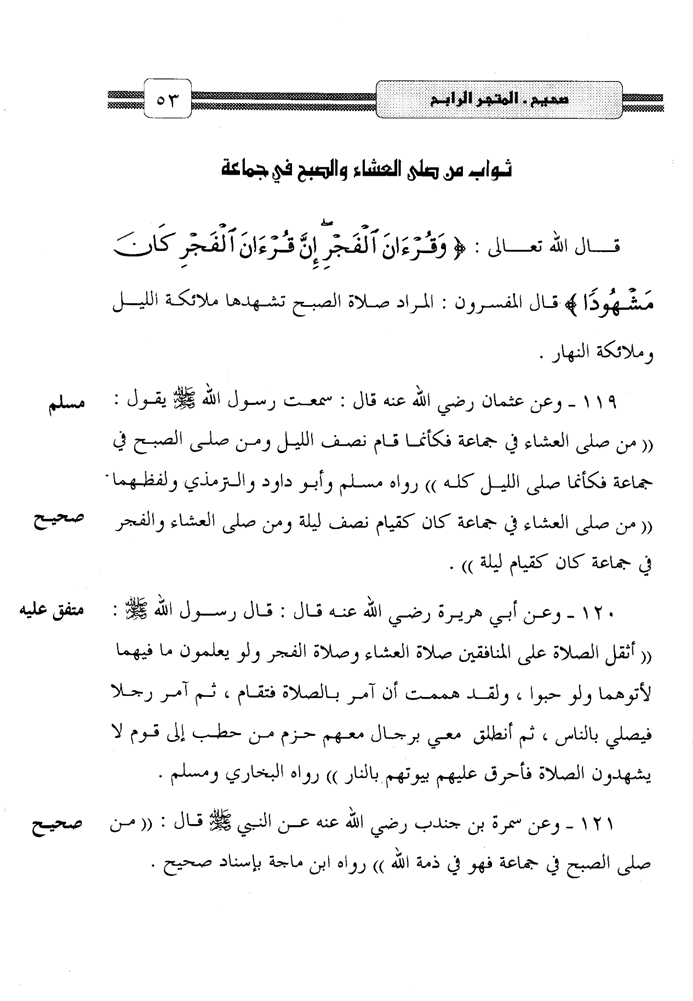 صحيح . المتجر الرابح
٥٣
ثواب من صلى العشاء والصبح في جماعة
قال الله تعالى : ﴿ وَقُرْءَانَ ٱلْفَجْرِ ۖ إِنَّ قُرْءَانَ ٱلْفَجْرِ كَانَ
مَشْهُودًا ﴾ قال المفسرون : المراد صلاة الصبح تشهدها ملائكة الليل
وملائكة النهار .
١١٩ - وعن عثمان رضي الله عنه قال : سمعت رسول الله ﷺ يقول : مسلم
(( من صلى العشاء في جماعة فكأنما قام نصف الليل ومن صلى الصبح في
جماعة فكأنما صلى الليل كله )) رواه مسلم وأبو داود والترمذي ولفظهما
(( من صلى العشاء في جماعة كان كقيام نصف ليلة ومن صلى العشاء والفجر صحيح
في جماعة كان كقيام ليلة )) .
١٢٠ - وعن أبي هريرة رضي الله عنه قال : قال رسول الله ﷺ : متفق عليه
(( أثقل الصلاة على المنافقين صلاة العشاء وصلاة الفجر ولو يعلمون ما فيهما
لأتوهما ولو حبوا ، ولقد هممت أن آمر بالصلاة فتقام ، ثم آمر رجلا
فيصلي بالناس ، ثم أنطلق معي برجال معهم حزم من حطب إلى قوم لا
يشهدون الصلاة فأحرق عليهم بيوتهم بالنار )) رواه البخاري ومسلم .
١٢١ - وعن سمرة بن جندب رضي الله عنه عن النبي ﷺ قال : (( من صحيح
صلى الصبح في جماعة فهو في ذمة الله )) رواه ابن ماجة بإسناد صحيح .